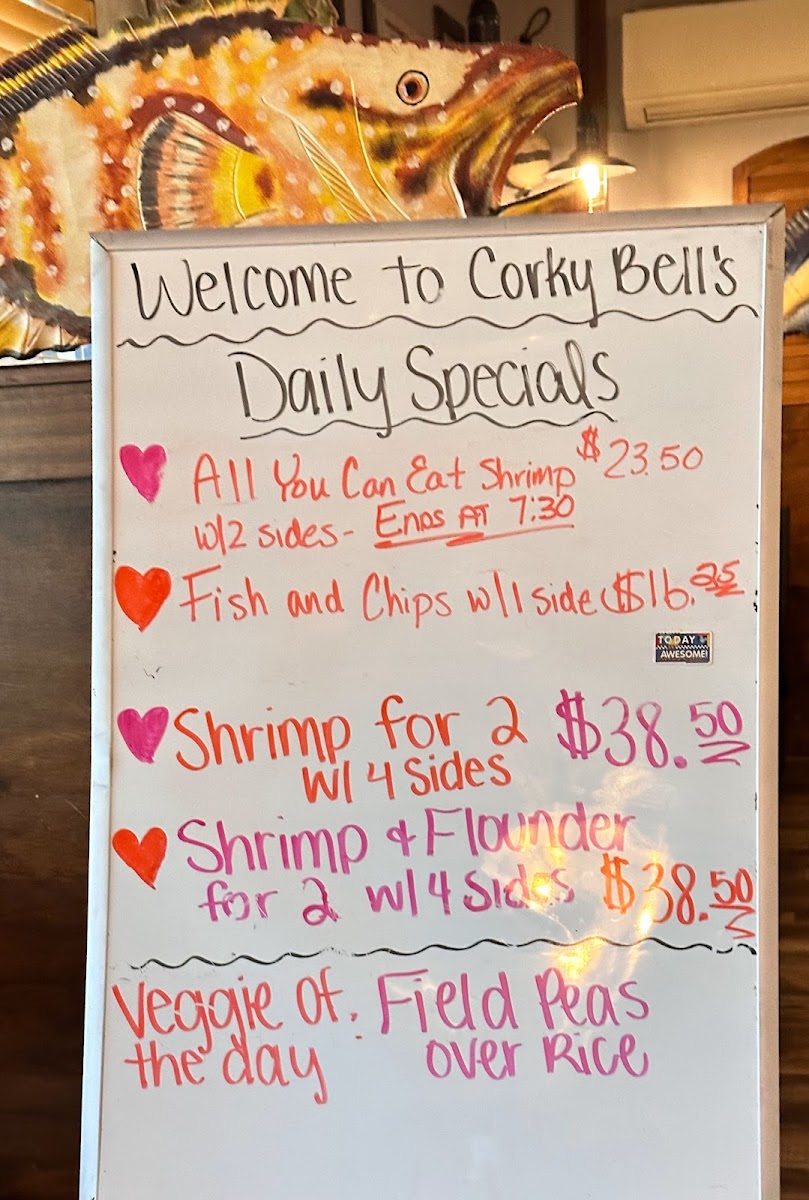 Welcome to Corky Bell's
Daily Specials
All You Can Eat Shrimp $23.50
w/2 sides- Ends AT 7:30
Fish and Chips w/1 side $16.25
TODAY
AWESOME!
Shrimp for 2 $38.50
w/ 4 Sides
Shrimp & Flounder
for 2 w/ 4 Sides $38.50
Veggie Of: Field Peas
the day over Rice